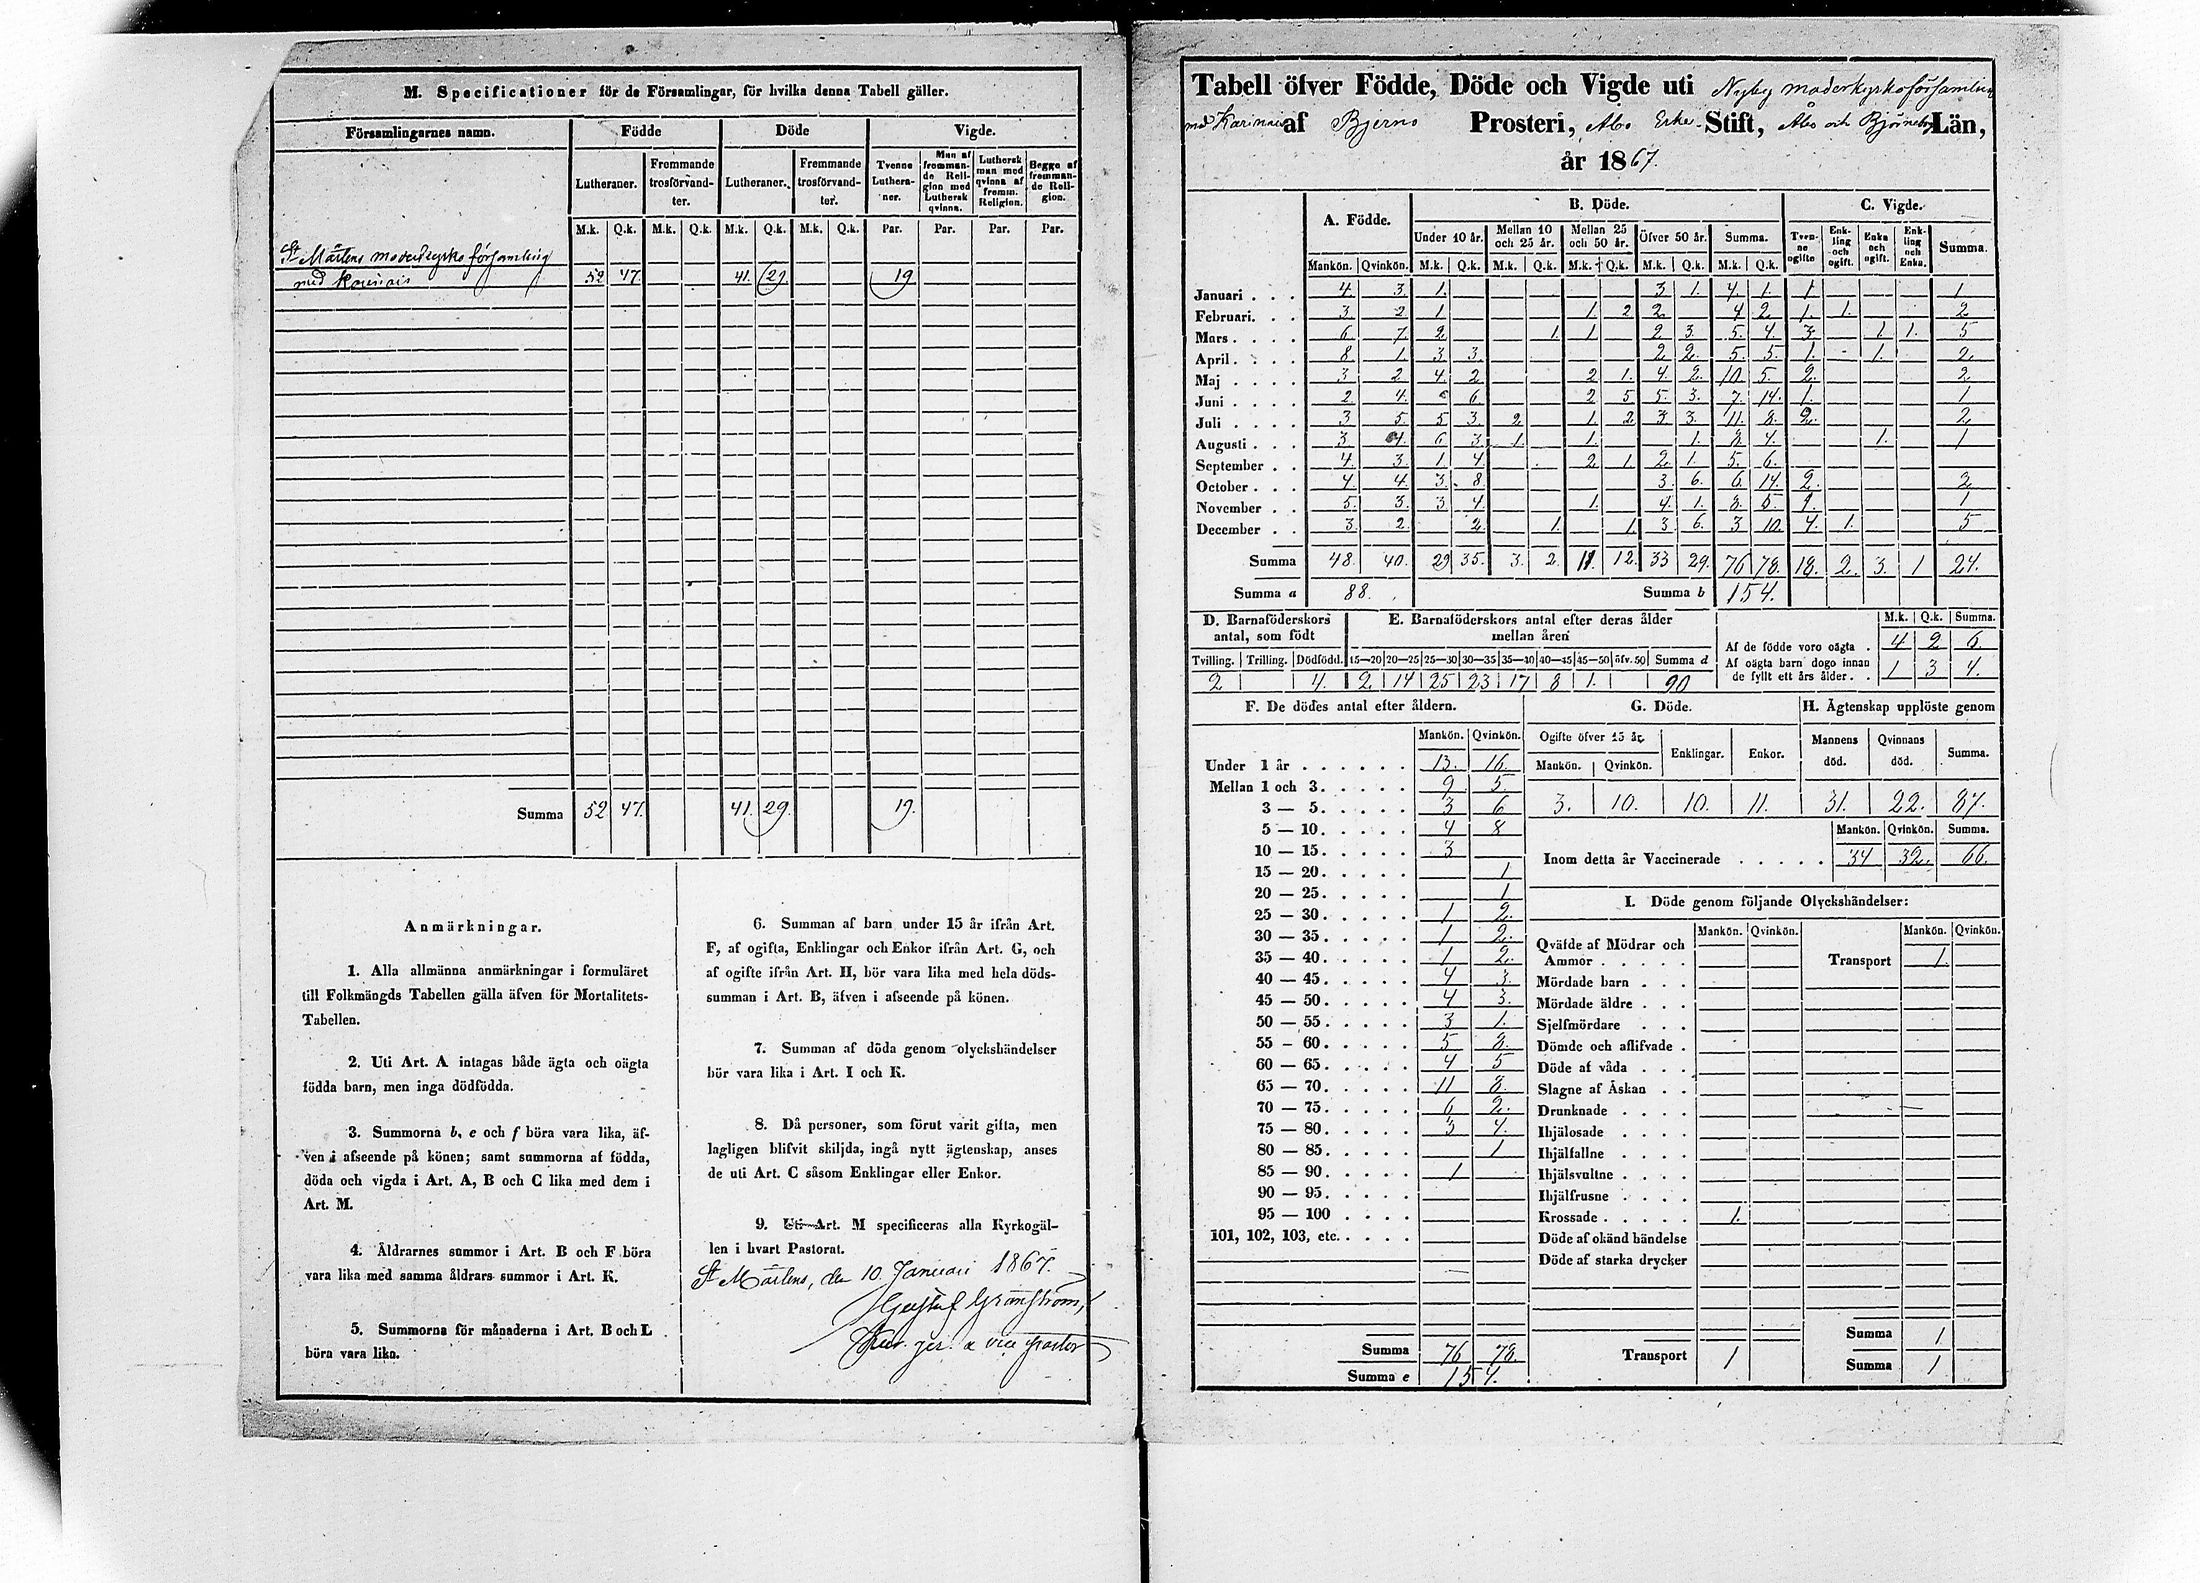 M. Specificationer för de Församlingar, för hvilka denna Tabell gäller.
Församlingarnes namn. Födde Döde Vigde.
Lutheraner. Frommande trosförvandter. Lutheraner. Fremmande trosförvandter. Tvenne Lutheraner. Man af fremmande Religion med Luthersk qvinna. Luthersk man med qvinna af fremm. Religion. Begge af fremmande Religion.
M.k. Q.k. M.k. Q.k. M.k. Q.k. M.k. Q.k. Par. Par. Par. Par.
St Mårtens moderkyrko församling
med Karinais 52 47. 41. 29. 19.
Summa 52 47. 41. 29. 19.
Anmärkningar.
1. Alla allmänna anmärkningar i formuläret
till Folkmängds Tabellen gälla äfven för Mortalitets-
Tabellen.
2. Uti Art. A intagas både ägta och oägta
födda barn, men inga dödfödda.
3. Summorna b, e och f böra vara lika, äf-
ven i afseende på könen; samt summorna af födda,
döda och vigda i Art. A, B och C lika med dem i
Art. M.
4. Åldrarnes summor i Art. B och F böra
vara lika med samma åldrars summor i Art. K.
5. Summorna för månaderna i Art. B och L
böra vara lika.
6. Summan af barn under 15 år ifrån Art.
F, af ogifta, Enklingar och Enkor ifrån Art. G, och
af ogifte ifrån Art. H, bör vara lika med hela döds-
summan i Art. B, äfven i afseende på könen.
7. Summan af döda genom olyckshändelser
bör vara lika i Art. I och K.
8. Då personer, som förut varit gifta, men
lagligen blifvit skiljda, ingå nytt ägtenskap, anses
de uti Art. C såsom Enklingar eller Enkor.
9. Uti Art. M specificeras alla Kyrkogäl-
len i hvart Pastorat.
St Mårtens, den 10. Januari 1867.
Gustaf Granström,
vice pastor
Tabell öfver Födde, Döde och Vigde uti Nyby moderkyrkoförsamling
med Karinais af Bjerno Prosteri, Åbo Erke Stift, Åbo och Björneborgs Län,
år 1867.
A. Födde. B. Döde. C. Vigde.
Under 10 år. Mellan 10 och 25 år. Mellan 25 och 50 år. Öfver 50 år. Summa. Tvenne ogifte Enkling och ogift. Enka och ogift. Enkling och Enka. Summa.
Mankön. Qvinkön. M.k. Q.k. M.k. Q.k. M.k. Q.k. M.k. Q.k. M.k. Q.k.
Januari . . . 4. 3. 1. 3 1. 4. 1. 1 1
Februari. . . 3 2 1. 1. 2 2. 4 2. 1. 1. 2
Mars . . . . 6 7. 2. 1. 1 2 3. 5. 4. 3. 1 1. 5
April . . . . 8 1. 3 3. 2 2. 5. 5. 1. 1. 2.
Maj . . . . 3 2 4. 2. 2 1. 4. 2. 10 5. 2. 2
Juni . . . . 2 4. 6. 2 5 5. 3. 7. 14. 1. 1
Juli . . . . 3 5. 5 3. 2 1. 2. 3 3. 11. 8. 2. 2
Augusti . . . 3 4. 6 3. 1. 1. 1. 8. 4. 1. 1
September . . 4. 3. 1. 4. 2. 1. 2. 1. 5. 6.
October . . . 4. 4. 3. 8. 3. 6. 6. 14. 2. 2
November . . 5. 3. 3 4. 1. 4. 1. 8. 5. 1. 1
December . . 3. 2. 2. 1. 1. 3 6. 3 10. 4. 1. 5
Summa 48. 40. 29 35. 3. 2. 11. 12. 33 29. 76 78. 18. 2. 3. 1 24.
Summa a 88. Summa b 154.
D. Barnaföderskors antal, som födt
Tvilling. Trilling. Dödfödd.
2 4.
E. Barnaföderskors antal efter deras ålder mellan åren
15—20 20—25 25—30 30—35 35—40 40—45 45—50 öfv. 50 Summa d
2. 14 25 23 17 8 1. 90
M.k. Q.k. Summa.
Af de födde voro oägta . 4 2 6.
Af oägta barn dogo innan
de fyllt ett års ålder . . 1 3 4.
F. De dödes antal efter åldern.
Mankön. Qvinkön.
Under 1 år . . . . . . 13. 16.
Mellan 1 och 3. . . . . 9 5.
3 — 5. . . . . 3 6
5 — 10. . . . . 4 8
10 — 15. . . . . 3
15 — 20. . . . . 1
20 — 25. . . . . 1
25 — 30. . . . . 1 2.
30 — 35. . . . . 1 2.
35 — 40. . . . . 1 2.
40 — 45. . . . . 4 3.
45 — 50. . . . . 4 3.
50 — 55. . . . . 3 1.
55 — 60. . . . . 5 8.
60 — 65. . . . . 4 5
65 — 70. . . . . 11 8.
70 — 75. . . . . 6 2.
75 — 80. . . . . 3 4.
80 — 85. . . . . 1
85 — 90. . . . . 1
90 — 95. . . . .
95 — 100 . . . .
101, 102, 103, etc. . . . .
Summa 76 78.
Summa e 154.
G. Döde.
Ogifte öfver 15 år. Enklingar. Enkor.
Mankön. Qvinkön.
3. 10. 10. 11.
H. Ägtenskap upplöste genom
Mannens död. Qvinnans död. Summa.
31. 22. 87.
Mankön. Qvinkön. Summa.
Inom detta år Vaccinerade . . . . . 34 32. 66.
I. Döde genom följande Olyckshändelser:
Mankön. Qvinkön. Mankön. Qvinkön.
Qväfde af Mödrar och
Ammor . . . . . Transport 1.
Mördade barn . . .
Mördade äldre . . .
Sjelfmördare . . .
Dömde och aflifvade .
Döde af våda . . .
Slagne af Åskan . .
Drunknade . . . .
Ihjälosade . . . .
Ihjälfallne . . . .
Ihjälsvultne . . . .
Ihjälfrusne . . . .
Krossade . . . . . 1.
Döde af okänd händelse
Döde af starka drycker
Summa 1
Transport 1 Summa 1